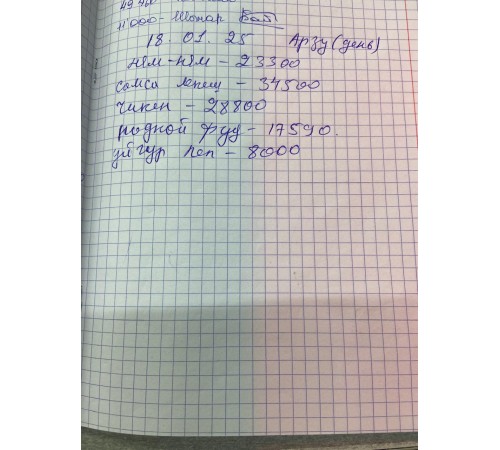 11000 - Шокар Бат
18.01.25 Арзу (день)
ням-ням - 23300
самса лепеш - 34500
чикен - 28800
родной фуд - 17590.
уйгур леп - 8000